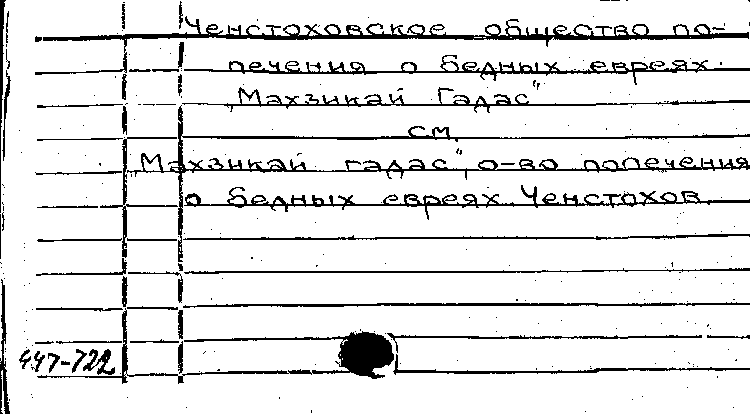 Ченстоховское общество по-
печения о бедных евреях.
„Махзикай Гадас"
см.
„Махзикай гадас", о-во попечения
о бедных евреях. Ченстохов.
447-722